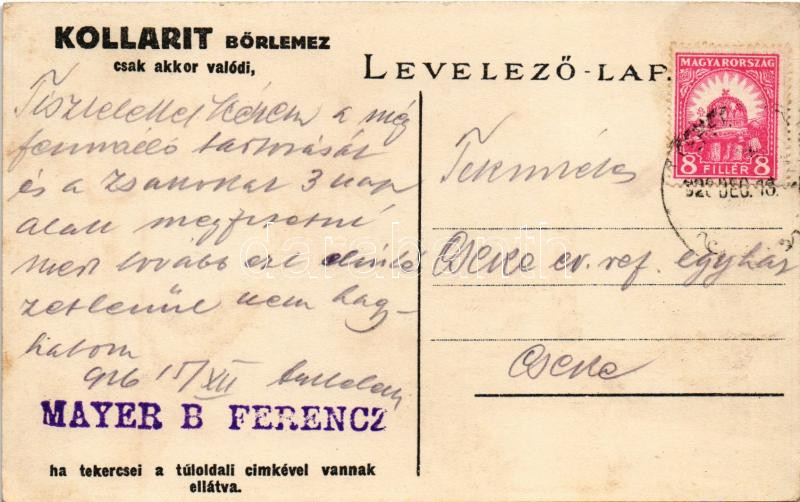 KOLLARIT BŐRLEMEZ
csak akkor valódi,
LEVELEZŐ-LAP.
MAGYARORSZÁG
8 FILLÉR 8
926 DEC. 16.
Tisztelettel kérem a még
fennálló tartozását
és a zsákokat 3 nap
alatt megfizetni
mert tovább ezt elinté
zetlenül nem hagy-
hatom
926 15/XII
MAYER B FERENCZ
ha tekercsei a túloldali cimkével vannak
ellátva.
Tekintetes
Cseke ev. ref. egyház
Cseke
darabanth